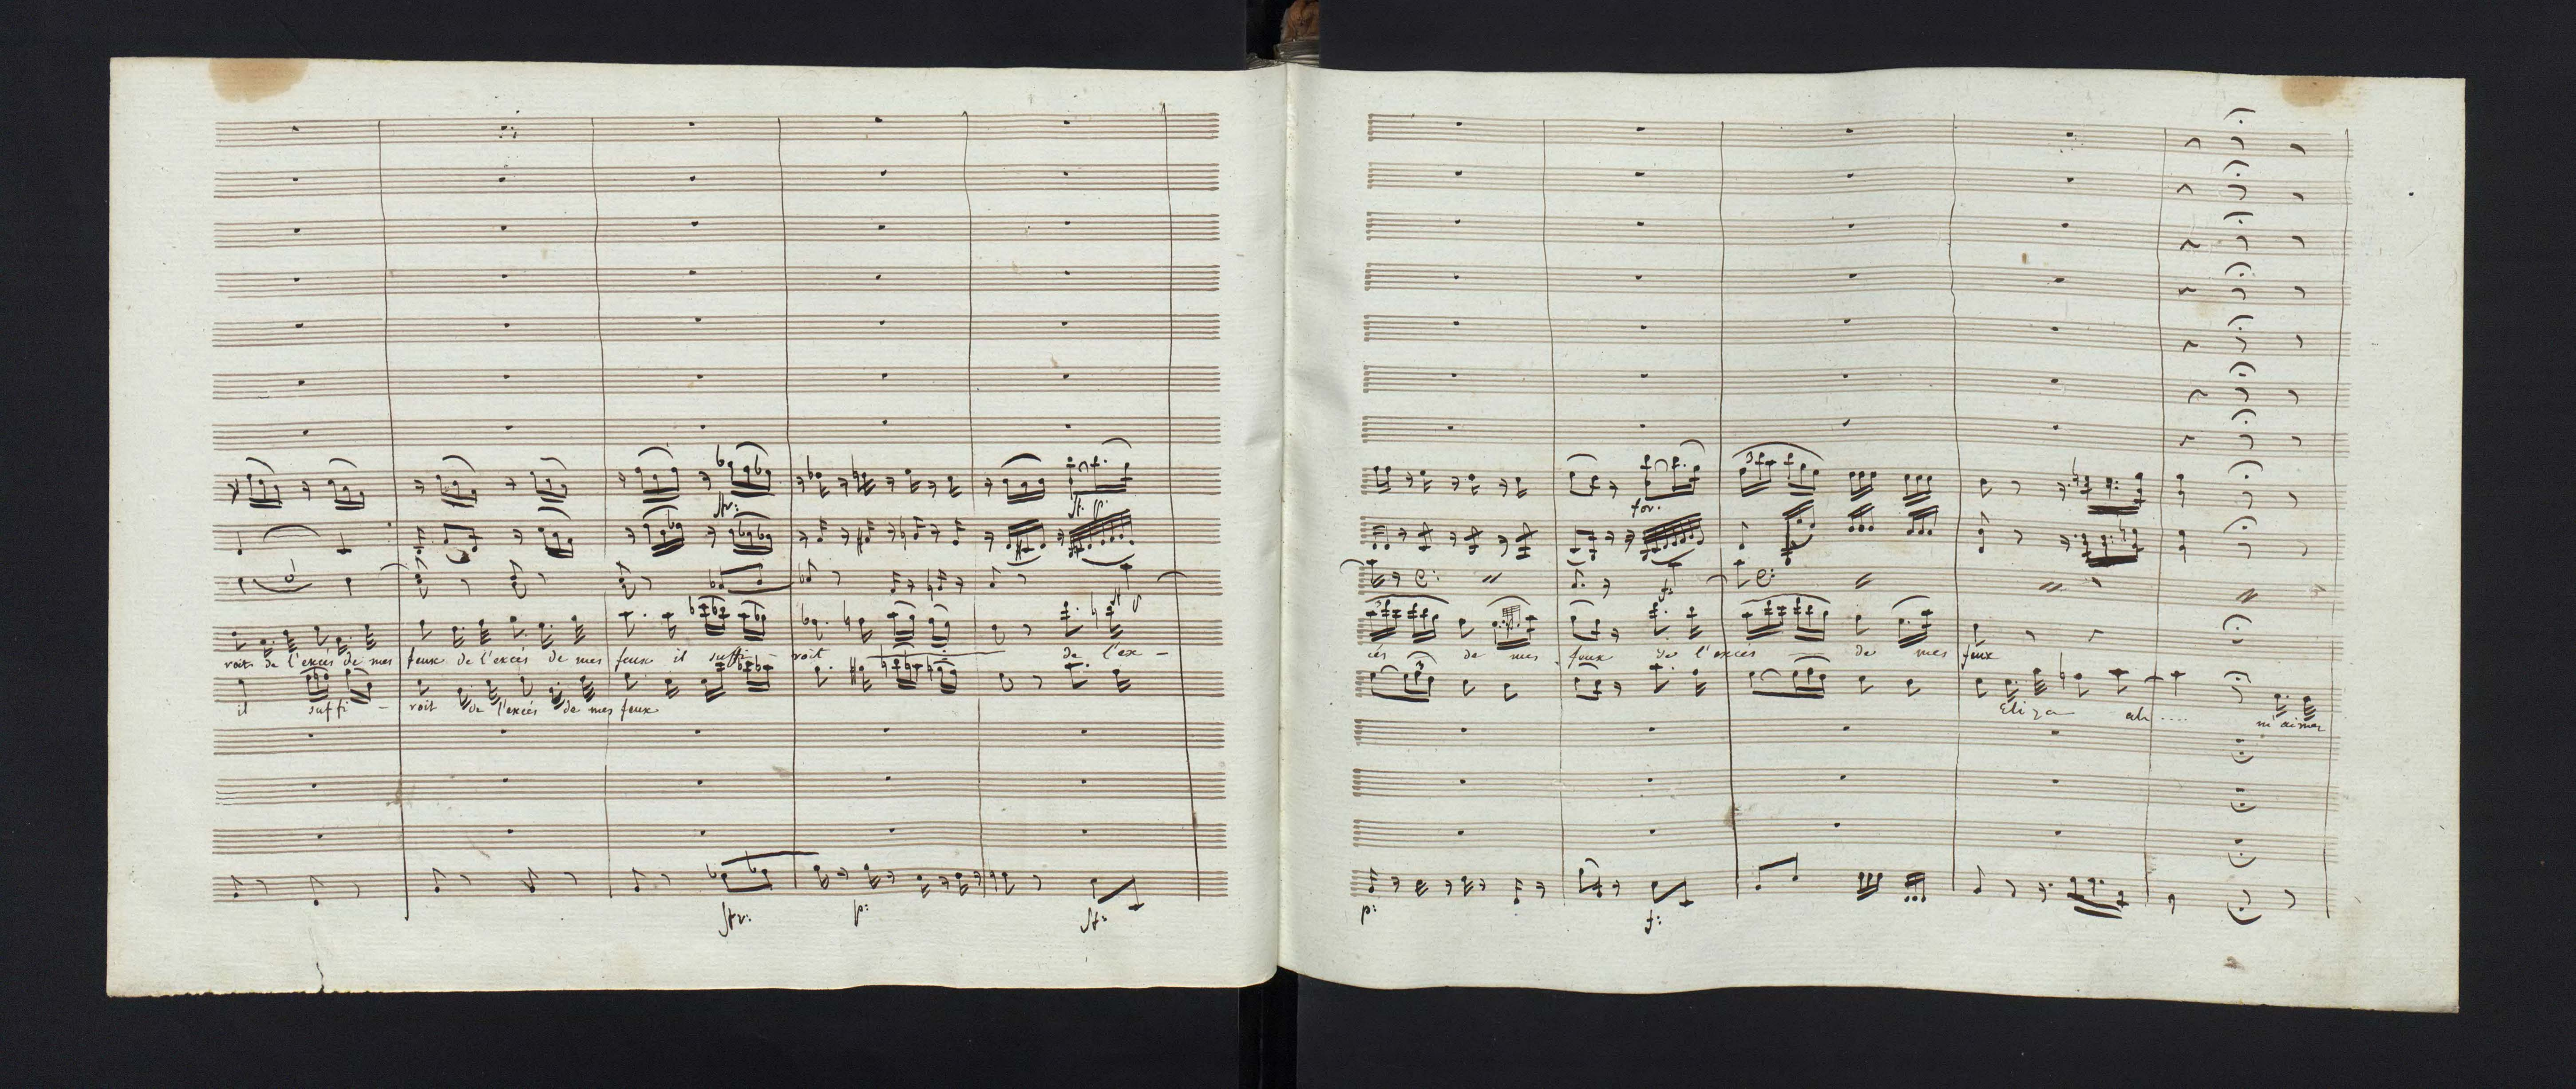 str:
st: p
roit de l'excès de mes feux de l'excés de mes feux il suffi - roit de l'ex -
il suffi - roit de l'excés de mes feux
str: p: st:
for.
f:
cés de mes feux de l'exces de mes feux
Eliza ah .... m'aimer
p: f: